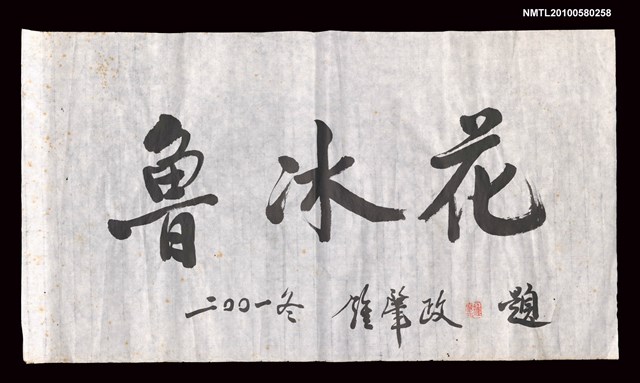 NMTL20100580258
魯冰花
二00一冬 鍾肇政 題